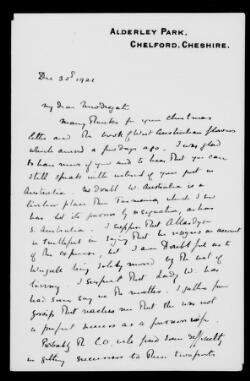 ALDERLEY PARK,
CHELFORD, CHESHIRE.
Dec 30th 1921
My dear
Many thanks for your Christmas
letter and the book of West Australian flowers
which arrived a few days ago. I was glad
to have news of you and to hear that you can
still speak with of your post in
Australia. No doubt W. Australia is a
livelier place than Tasmania, which I see
has lost its governor by resignation, as has
S. Australia. I suppose that Allardyce
is truthful in saying that he resigns on account
of the expense, but I am doubtful as to
Weigall being solely moved by the cost of
living. I suspect that Lady W. has
had some say in the matter. I gather from
gossip that reaches me that she was not
a perfect success as a governor's wife.
Probably the C.O. will find some difficulty
in getting successors to these two posts